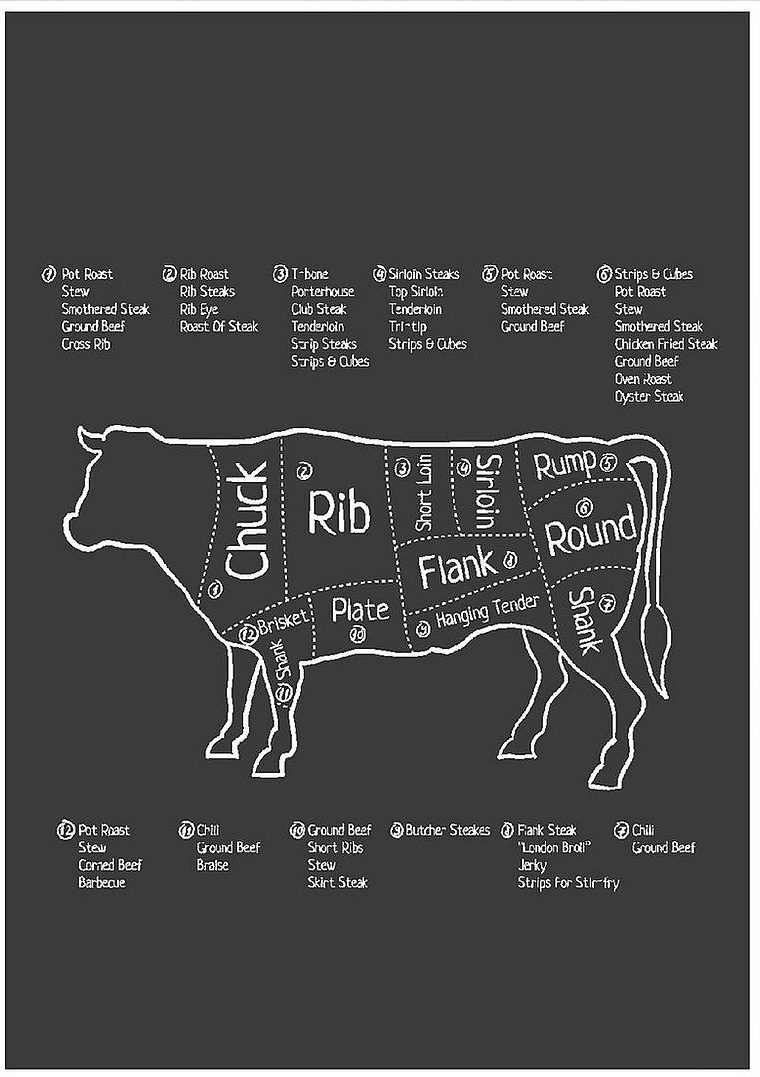 ① Pot Roast
Stew
Smothered Steak
Ground Beef
Cross Rib
② Rib Roast
Rib Steaks
Rib Eye
Roast Of Steak
③ T-bone
Porterhouse
Club Steak
Tenderloin
Strip Steaks
Strips & Cubes
④ Sirloin Steaks
Top Sirloin
Tenderloin
Tri-tip
Strips & Cubes
⑤ Pot Roast
Stew
Smothered Steak
Ground Beef
⑥ Strips & Cubes
Pot Roast
Stew
Smothered Steak
Chicken Fried Steak
Ground Beef
Oven Roast
Oyster Steak
Chuck ①
② Rib
③ Short Loin
④ Sirloin
Rump ⑤
⑥ Round
Flank ⑧
Shank ⑦
⑨ Hanging Tender
Plate ⑩
⑫ Brisket
Shank ⑪
⑫ Pot Roast
Stew
Corned Beef
Barbecue
⑪ Chili
Ground Beef
Braise
⑩ Ground Beef
Short Ribs
Stew
Skirt Steak
⑨ Butcher Steakes
⑧ Flank Steak
"London Broil"
Jerky
Strips For Stir-fry
⑦ Chili
Ground Beef